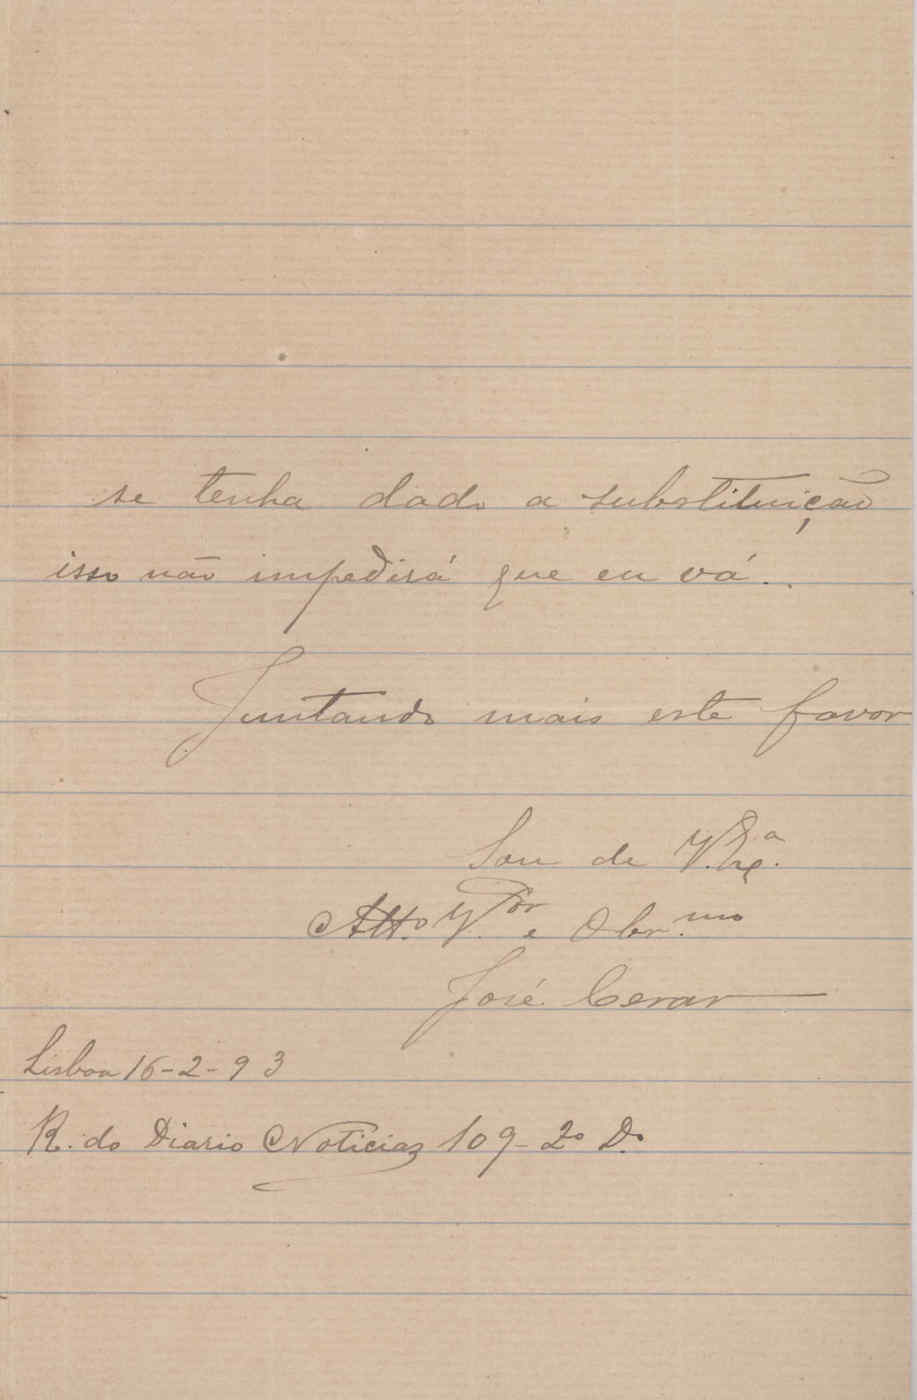 se tenha dado a substituição
isso não impedirá que eu vá..
Juntando mais este favor
Sou de V. Exª.
Attº. Vor. e Obrmo.
José Cesar
Lisboa 16-2-93
R. do Diario Noticias 109-2º D.º